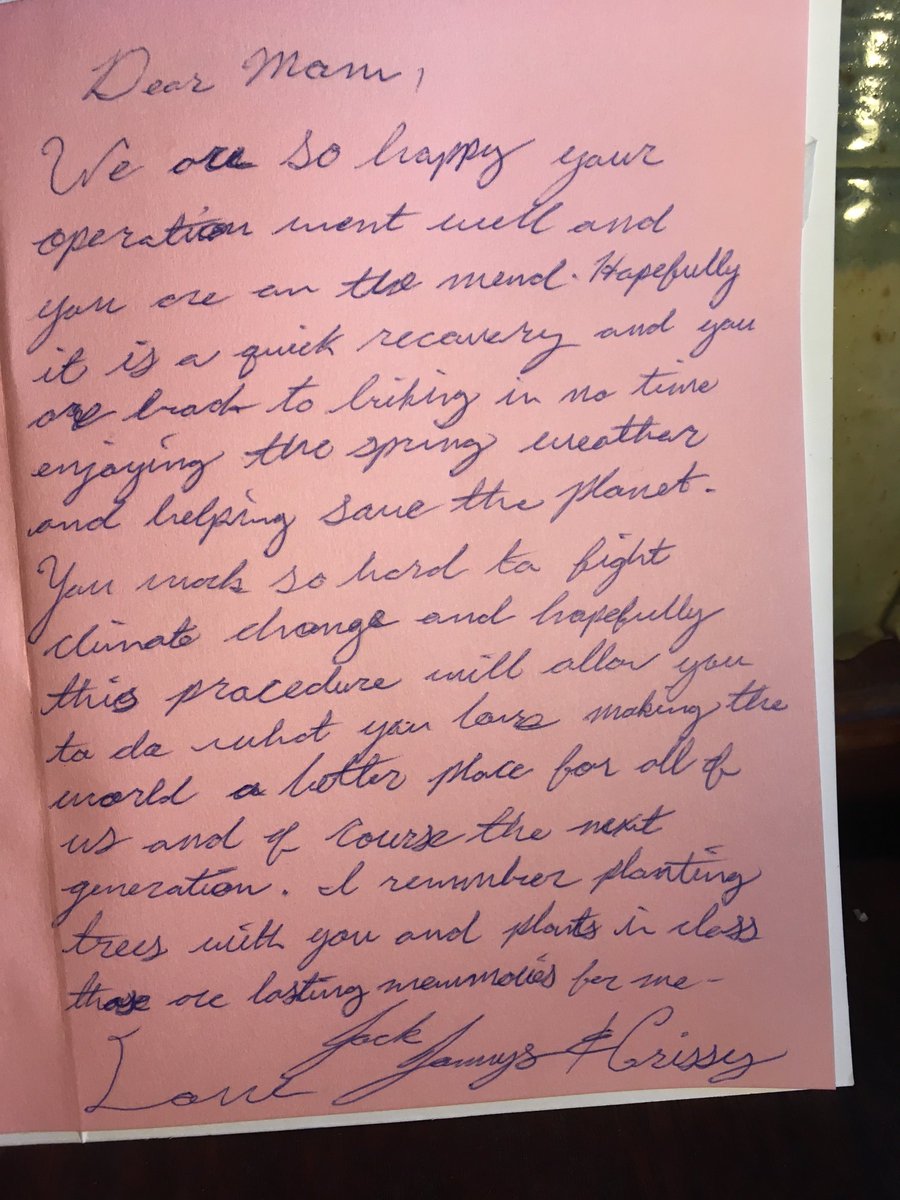 Dear Mom,
We are so happy your
operation went well and
you are on the mend. Hopefully
it is a quick recovery and you
are back to biking in no time
enjoying the spring weather
and helping save the planet.
You work so hard to fight
climate change and hopefully
this procedure will allow you
to do what you love making the
world a better place for all of
us and of course the next
generation. I remember planting
trees with you and plants in class
those are lasting memmories for me-
Jack
Love & Crissy